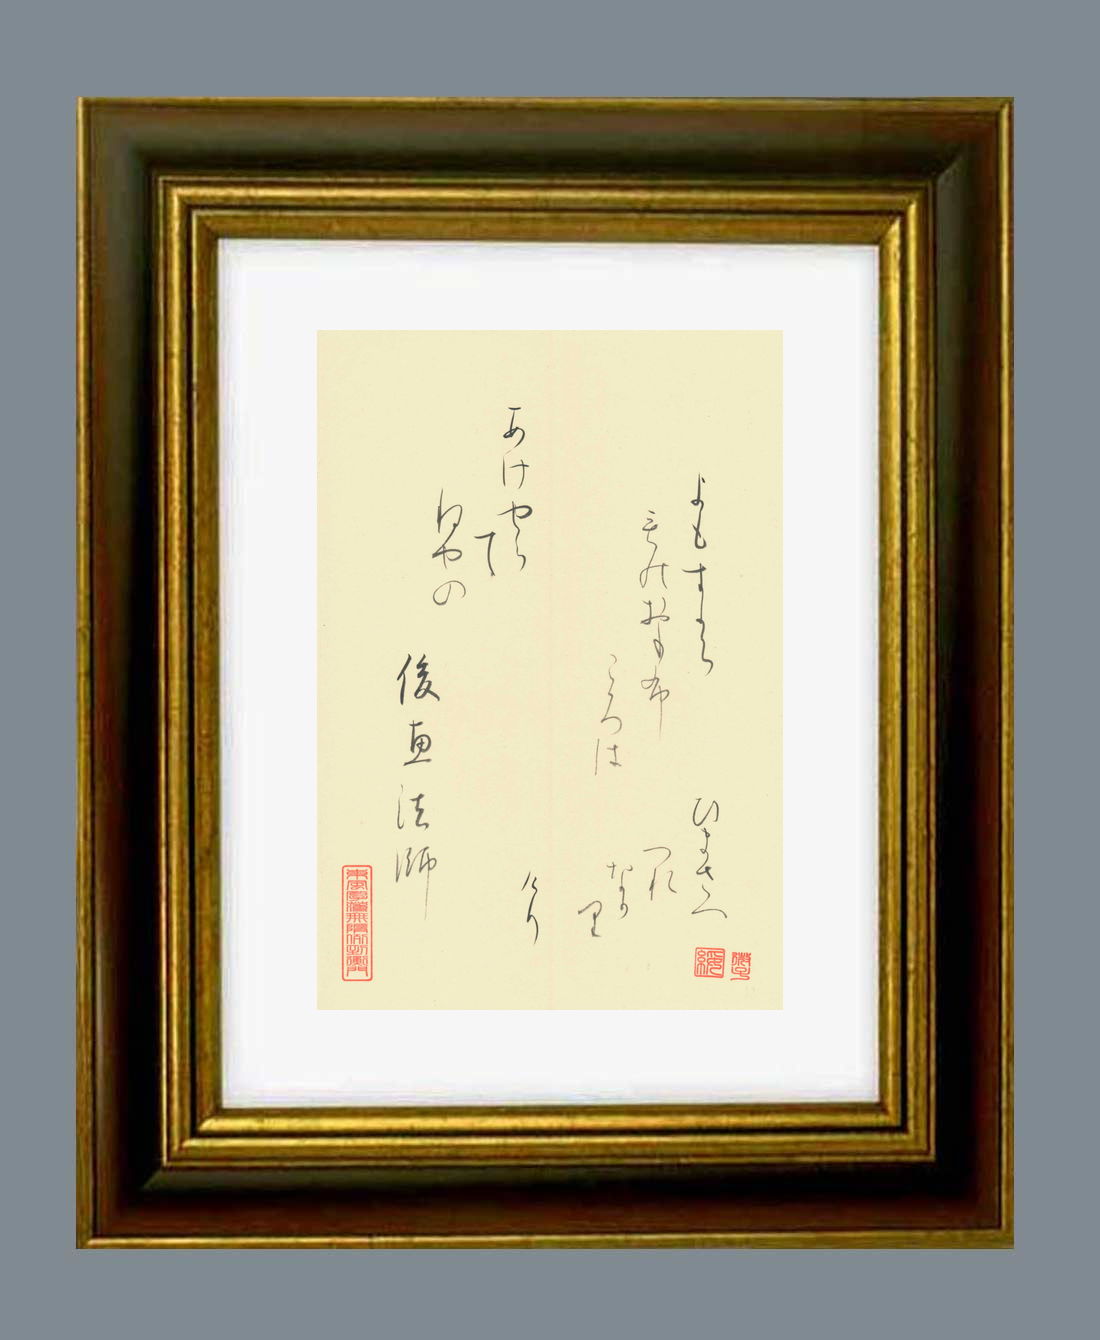 よもすから
ものおもふ
ころは
あけやら
て
ねやの
ひまさへ
つれ
なか
里
けり
俊恵法師